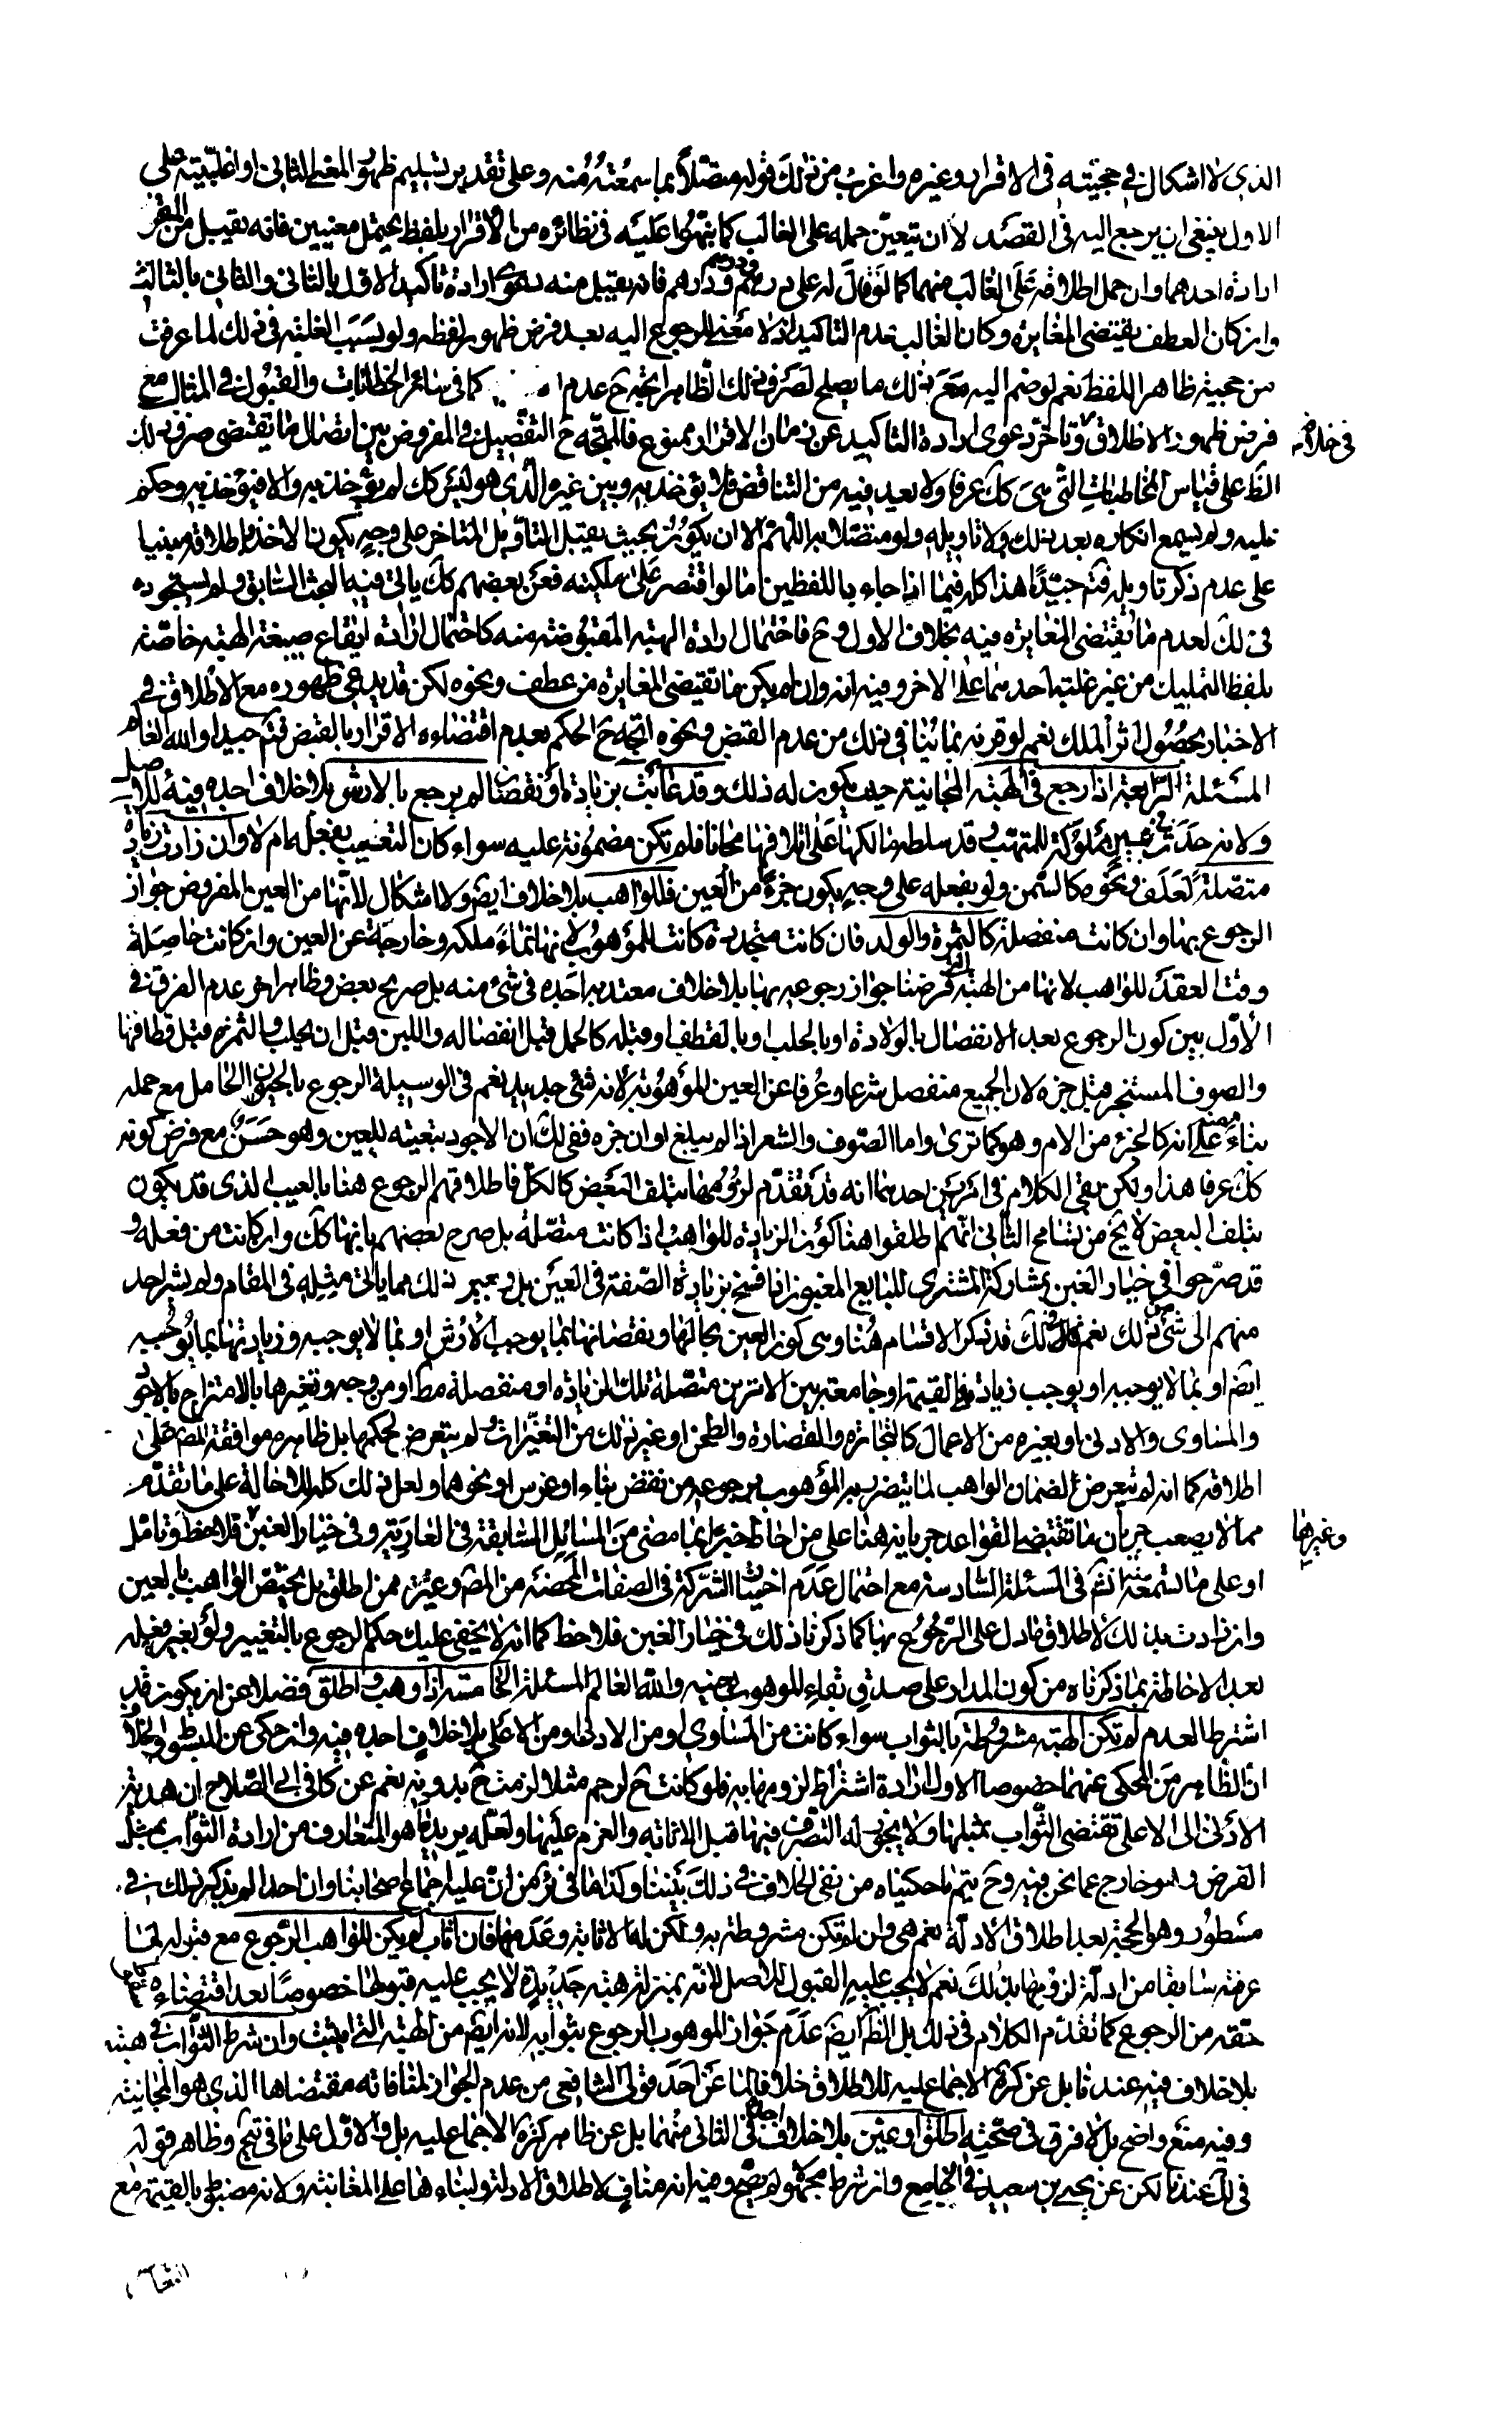 الذى لا اشكال فى حجيته فى الاقرار وغيره واغرب من ذلك قوله متصلاً بما سمعته منه وعلى تقدير تسليم ظهور المعنى الثانى او اغلبيته على
الاول ينبغى ان يرجع اليه فى القصد لا ان يتعين حمله على الغالب كما نبهوا عليه فى نظائره من الاقرار بلفظ يحتمل معنيين فانه يقبل من المقر
ارادة احدهما وان حمل اطلاقه على الغالب منهما كما لو قال له على درهم ودرهم ودرهم فانه يقبل منه دعوى ارادة تاكيد الاول بالثانى والثانى بالثالث
وان كان العطف يقتضى المغايرة وكان الغالب عدم التاكيد اذ لا معنى للرجوع اليه بعد فرض ظهور لفظه ولو بسبب الغلبة فى ذلك لما عرفت
من حجية ظاهر اللفظ نعم لو ضم اليه مع ذلك ما يصلح لصرف ذلك الظاهر اتجه ح عدم كما فى سائر الخطابات والقبول فى المثال مع
فرض ظهور الاطلاق فى خلافه وتاخر دعوى ارادة التاكيد عن زمان الاقرار ممنوع فالمتجه ح التفصيل فى المفروض بين اتصال ما يقتضى صرف ذلك
الظ على قياس المخاطبات التى هى كك عرفا ولا يعد فيه من التناقض فلا يؤخذ به وبين غيره الذى هو ليس كك لم يؤخذ به والا فيؤخذ به وحكم
عليه ولم يسمع انكاره بعد ذلك ولا تاويله ولو متصلا به اللهم الا ان يكون بحيث يقبل التاويل المتاخر على وجه يكون الاخذ باطلاقه مبنيا
على عدم ذكر تاويله فتم جيدا هذا كله فيما اذا جاء باللفظين اما لو اقتصر على ملكيته فعن بعضهم كك ياتى فيه البحث السابق ولم يستجوده
فى ذلك لعدم ما يقتضى المغايرة فيه بخلاف الاول وح فاحتمال ارادة الهبة المقبوضة منه كاحتمال ارادة ايقاع صيغة الهبة خاصة
بلفظ التمليك من غير غلبة احدهما على الاخر وفيه انه وان لم يكن ما تقتضى المغايرة من عطف ونحوه لكن قد يدعى ظهوره مع الاطلاق فى
الاخبار بحصول اثر الملك نعم لو قرنه بما ينافى ذلك من عدم القبض ونحوه اتجه ح الحكم بعدم اقتضاءه الاقرار بالقبض فتم جيدا والله العالم
المسئلة الرابعة اذا رجع فى الهبة المجانية حيث يكون له ذلك وقد عابت بزيادة او نقصان لم يرجع بالارش بلا خلاف اجده فيه للاصل
ولانه حدث فى عين مملوكة للمتهب وقد سلطه مالكها على اتلافها مجانا فلم تكن مضمونة عليه سواء كان التعيب بفعله ام لا وان زادت زيادة
متصلة لعلف ونحوه كالسمن ولو بفعله على وجه يكون جزءا من العين فللواهب بلا خلاف ايضا ولا اشكال لانها من العين المفروض جواز
الرجوع بها وان كانت منفصلة كالثمرة والولد فان كانت متجددة كانت للموهوب لانها نماء ملكه وخارجة عن العين وان كانت حاصلة
وقت العقد للواهب لانها من الهبة التى فرضنا جواز رجوعه بها بلا خلاف معتد به اجده فى شئ منه بل صريح بعض وظاهر اخر عدم الفرق فى
الاول بين كون الرجوع بعد الانفصال بالولادة او بالحلب او بالقطف او قبله كالحمل قبل انفصاله واللبن قبل ان يحلب والثمرة قبل قطافها
والصوف المستجز قبل جزه لان الجميع منفصل شرعا وعرفا عن العين الموهوبة لانه شئ جديد نعم فى الوسيلة الرجوع بالحيوان الحامل مع حمله
بناء منه على انه كالجزء من الام وهو كما ترى واما الصوف والشعر اذا لم يبلغ اوان جزه ففى لك ان الاجود تبعيته للعين وهو حسن مع فرض كونه
كك عرفا هذا ولكن بقى الكلام فى امرين احدهما انه قد تقدم لزومها بتلف البعض كالكل فاطلاقهم الرجوع هنا بالعيب الذى قد يكون
بتلف البعض لا يخ من تسامح الثانى انهم اطلقوا هنا كون الزيادة للواهب اذا كانت متصلة بل صرح بعضهم بانها كك وان كانت من فعله و
قد صرحوا فى خيار الغبن بمشاركة المشترى للبايع المغبون اذا فسخ بزيادة الصفة فى العين بل وبغير ذلك مما ياتى مثله فى المقام ولم يشر احد
منهم الى شئ من ذلك نعم فى لك قد ذكر الاقسام هنا وهى كون العين بحالها ونقصانها بما يوجب الارش او بما لا يوجبه وزيادتها بما يوجبه
ايضا او بما لا يوجبه او يوجب زيادة القيمة او جامعة بين الامرين متصلة تلك الزيادة او منفصلة مط او من وجه وتغيرها بالامتزاج بالاجود
والمساوى والادنى او بغيره من الاعمال كالنجارة والقصارة والطحن او غير ذلك من التغيرات ولم يتعرض لحكمها بل ظاهره موافقة المص على
اطلاقه كما انه لم يتعرض لضمان الواهب لما يتضرر به الموهوب برجوعه من نقض بناء او غرس او نحوهما ولعل ذلك كله لاحالة على ما تقدم
مما لا يصعب جريان ما تقتضى القواعد جريانه هنا على من احاط خبرا بما مضى من المسائل السابقة فى العارية وفى خيار الغبن وغيرها فلاحظ وتامل
او على ما تسمعه انش فى المسئلة السادسة مع احتمال عدم اثبات الشركة فى الصفات المحضة من المص وغيره ممن اطلق بل يختص الواهب بالعين
وان زادت بذلك لاطلاق ما دل على الرجوع بها كما ذكرنا ذلك فى خيار الغبن فلاحظ كما انه لا يخفى عليك حكم الرجوع بالتغيير ولو بغير فعله
بعد الاحاطة بما ذكرناه من كون المدار على صدق بقاء الموهوب بعينه والله العالم المسئلة الخامسة اذا وهب واطلق فضلا عن ان يكون قد
اشترط العدم لم تكن الهبة مشروطة بالثواب سواء كانت من المساوى او من الادنى او من الاعلى بلا خلاف اجده فيه وان حكى عن المبسوط والخلاف
ان الظاهر من المحكى عنهما خصوصا الاول ارادة اشتراط لزومها به فلو كانت ح لرحم مثلا لزمت ح بدونه نعم عن كافى ابى الصلاح ان هدية
الادنى الى الاعلى تقتضى الثواب بمثلها ولا يجوز له التصرف فيها قبل الاثابة والعزم عليها ولعله يريد ما هو المتعارف من ارادة الثواب بمثل
القرض وهو خارج عما نحن فيه وح يتم ما حكيناه من نفى الخلاف فى ذلك بيننا وكذا ما فى من ان عليه اجماع اصحابنا وان احدا لم يذكر ذلك فى
مسطور وهو الحجة بعد اطلاق الادلة نعم هى وان لم تكن مشروطة به ولكن له الاثابة وعدمها فان اثاب لم يكن للواهب الرجوع مع قبوله لما
عرفته سابقا من ادلة لزومها بذلك نعم لا يجب عليه القبول للاصل لانه بمنزلة هبة جديدة لا يجب عليه قبولها خصوصا بعد اقتضاءه
حقه من الرجوع كما تقدم الكلام فى ذلك بل الظ ايضا عدم جواز الموهوب الرجوع بثوابه لانه ايضا من الهبة التى اثيبت وان شرط الثواب فى هبته
بلا خلاف فيه عندنا بل عن كره الاجماع عليه للاطلاق خلافا لما عن احد قولى الشافعى من عدم الجواز لمنافاته مقتضاها الذى هو المجانية
وفيه منع واضح بل لا فرق فى صحته اطلق او عين بلا خلاف اجده فى الثانى منهما بل عن ظاهر كره الاجماع عليه بل والاول على ما فى وظاهر قوله
فى لك عندنا لكن عن يحيى بن سعيد فى الجامع وان شرط مجهولا لم يصح وفيه انه مناف لاطلاق الادلة ولبناءها على المغابنة ولانه منضبط بالقيمة مع